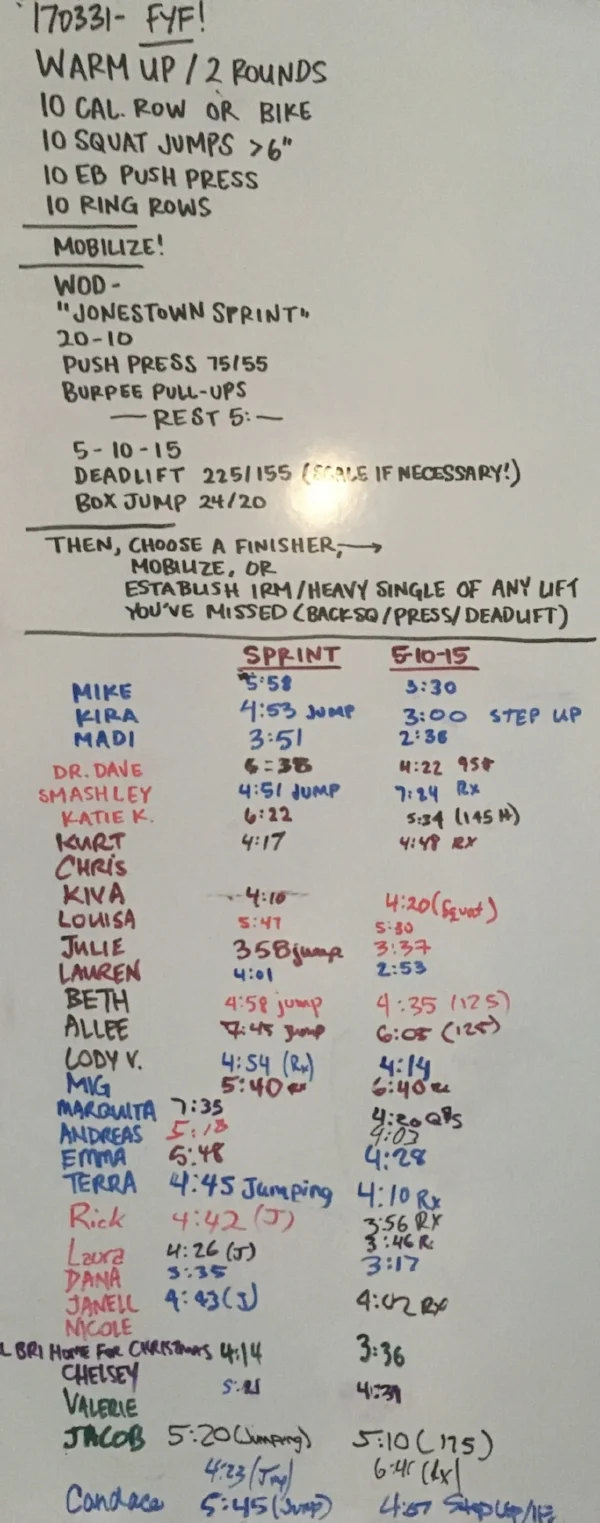 170331- FYF!
WARM UP / 2 ROUNDS
10 CAL. ROW OR BIKE
10 SQUAT JUMPS >6"
10 EB PUSH PRESS
10 RING ROWS
MOBILIZE!
WOD -
"JONESTOWN SPRINT"
20-10
PUSH PRESS 75/55
BURPEE PULL-UPS
— REST 5: —
5-10-15
DEADLIFT 225/155 (SCALE IF NECESSARY!)
BOX JUMP 24/20
THEN, CHOOSE A FINISHER, →
MOBILIZE, OR
ESTABLISH 1RM/HEAVY SINGLE OF ANY LIFT
YOU'VE MISSED (BACKSQ/PRESS/DEADLIFT)
SPRINT 5-10-15
MIKE 5:58 3:30
KIRA 4:53 JUMP 3:00 STEP UP
MADI 3:51 2:38
DR. DAVE 6:38 4:22 95#
SMASHLEY 4:51 JUMP 7:24 Rx
KATIE K. 6:22 5:34 (145#)
KURT 4:17 4:48 RX
CHRIS
KIVA 4:10 4:20 (Squat)
LOUISA 5:47 5:30
JULIE 358 jump 3:37
LAUREN 4:01 2:53
BETH 4:58 jump 4:35 (125)
ALLEE 7:45 jump 6:05 (125)
LODY V. 4:54 (Rx) 4:14
MIG 5:40 6:40
MARQUITA 7:35 4:20
ANDREAS 5:18 4:03
EMMA 5:48 4:28
TERRA 4:45 Jumping 4:10 Rx
Rick 4:42 (J) 3:56 RX
Laura 4:26 (J) 3:46 R
DANA 3:35 3:17
JANELL 4:43 (J) 4:02 Rx
NICOLE
BRI HOME FOR CHRISTMAS 4:14 3:36
CHELSEY 5:21 4:39
VALERIE
JACOB 5:20 (Jumping) 5:10 (175)
4:23 (Jmp) (Rx)
Candace 5:45 (Jump) 4:57 Step Up